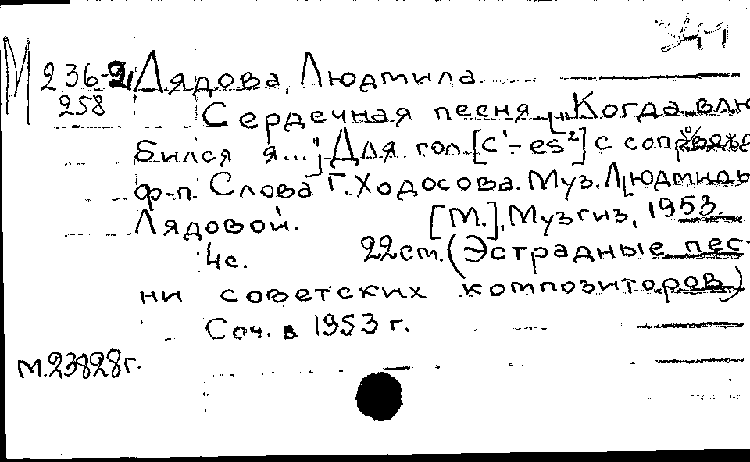 М 236-21 Лядова, Людмила
258
Сердечная песня. [„Когда влю
бился я...“] Для гол. [c¹-es²] с сопр.
ф-п. Слова Г. Ходосова. Муз. Людмилы
Лядовой. [М.], Музгиз, 1953
4с. 22см. (Эстрадные пес-
ни советских композиторов)
Соч. в 1953 г.
М.23828г.